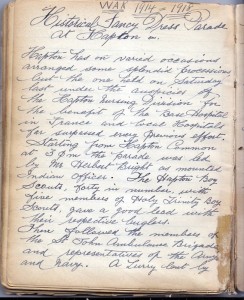 WAR 1914-1918
Historical Fancy Dress Parade
at Hapton
Hapton has on varied occasions
arranged some splendid processions
but the one held on Saturday
last under the auspices of
the Hapton Nursing Division for
the benefit of the Base Hospital
in France and local Hospitals
far surpassed every previous effort.
Starting from Hapton Common
at 3 p.m. the parade was led
by Mr Herbert Bright as mounted
Indian Officer. The Hapton Boy
Scouts, forty in number, with
five members of Holy Trinity Boy
Scouts, gave a good lead with
their respective buglers.
Then followed the members of
the St John Ambulance Brigade
and representatives of the Army
and Navy. A Lorry lent by